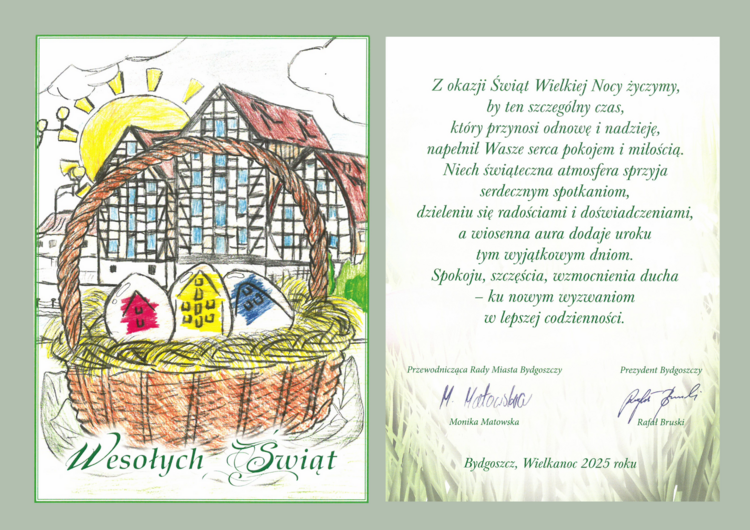 Wesołych Świąt
Z okazji Świąt Wielkiej Nocy życzymy,
by ten szczególny czas,
który przynosi odnowę i nadzieję,
napełnił Wasze serca pokojem i miłością.
Niech świąteczna atmosfera sprzyja
serdecznym spotkaniom,
dzieleniu się radościami i doświadczeniami,
a wiosenna aura dodaje uroku
tym wyjątkowym dniom.
Spokoju, szczęścia, wzmocnienia ducha
– ku nowym wyzwaniom
w lepszej codzienności.
Przewodnicząca Rady Miasta Bydgoszczy
M. Matowska
Monika Matowska
Prezydent Bydgoszczy
Rafał Bruski
Rafał Bruski
Bydgoszcz, Wielkanoc 2025 roku